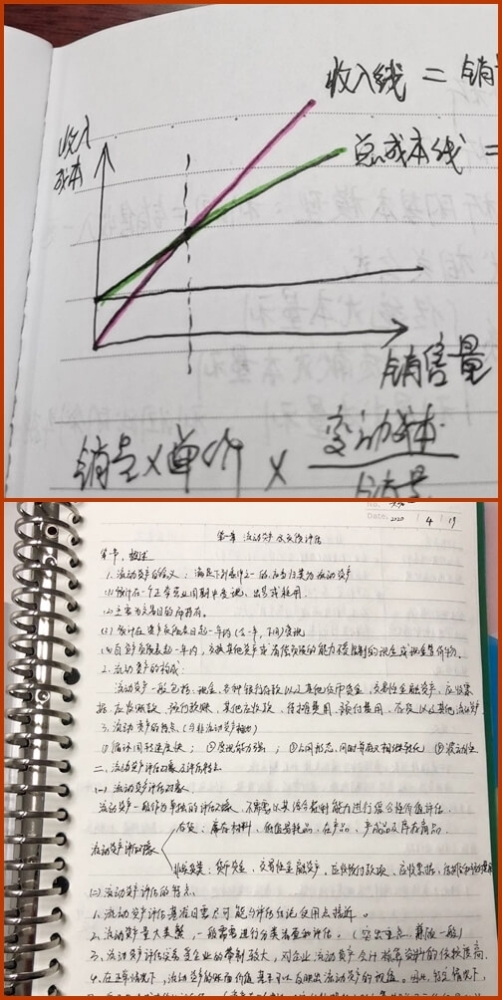 收入线 = 销
收入
成本
总成本线 =
销售量
销量×单价 × 变动成本
销量
Date. 2020 / 4 / 19
第一章 流动资产及实物评估
第一节、概述
1. 流动资产的含义：满足下列条件之一的，应当归类为流动资产
(1) 预计在一个正常营业周期中变现、出售或耗用
(2) 主要为交易目的而持有。
(3) 预计在资产负债表日起一年内（含一年，下同）变现
(4) 自资产负债表日起一年内，交换其他资产或清偿负债的能力不受限制的现金或现金等价物。
2. 流动资产的构成：
流动资产一般包括：现金、各种银行存款以及其他货币资金、交易性金融资产、应收票
据、应收账款、预付账款、其他应收款、待摊费用、存货以及其他流动资产
3. 流动资产的特点（与非流动资产相比）
① 循环周转速度快； ② 变现能力强；
二、流动资产评估对象及评估特点
(一) 流动资产评估对象
流动资产一般作为单独的评估对象，不需要以其综合获利能力进行综合性价值评估。
实货：库存材料、低值易耗品、在产品、产成品及库存商品
流动资产评估对象
货币资金、交易性金融资产、应收预付款项、应收票据
(二) 流动资产评估的特点
1. 流动资产评估基准日要尽可能与评估结论使用点接近。
2. 流动资产量大类繁，一般需要进行分类清查和评估。（突出重点，兼顾一般）
3. 对企业流动资产会计核算资料的依赖度高
4. 在正常情况下，流动资产的账面价值基本可以反映出流动资产的现值。